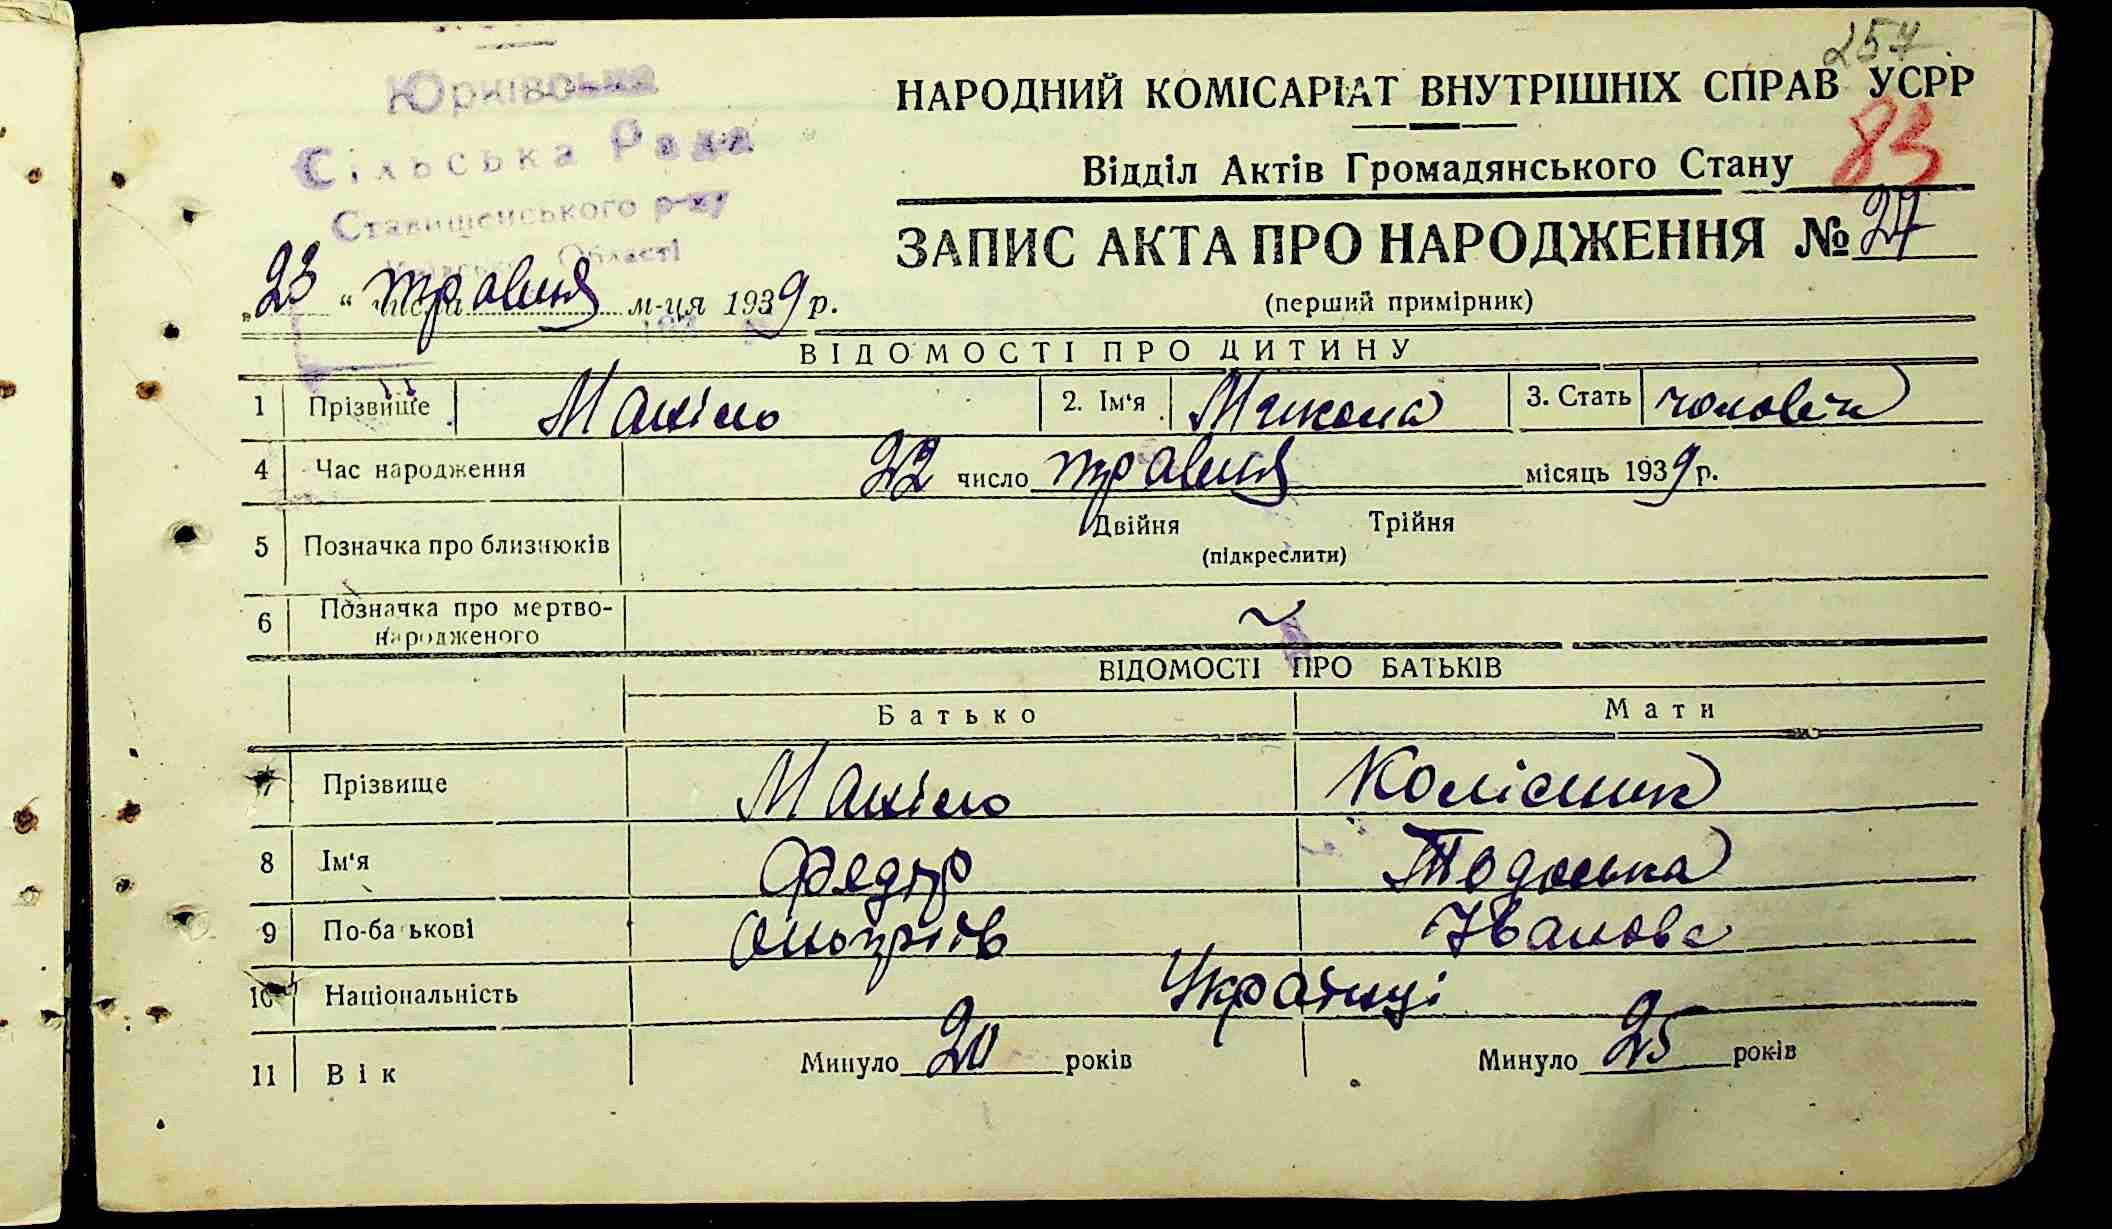 257.
Юрківська
Сільська Рада
Ставищенського р-ну
Області
НАРОДНИЙ КОМІСАРІАТ ВНУТРІШНІХ СПРАВ УСРР
Відділ Актів Громадянського Стану
83
ЗАПИС АКТА ПРО НАРОДЖЕННЯ № 27
(перший примірник)
„23“ числа травня м-ця 1939 р.
ВІДОМОСТІ ПРО ДИТИНУ
1 Прізвище Маніло 2. Ім'я Микола 3. Стать чоловіч
4 Час народження 22 число травня місяць 1939 р.
5 Позначка про близнюків Двійня Трійня
(підкреслити)
6 Позначка про мертво-
народженого
ВІДОМОСТІ ПРО БАТЬКІВ
Батько Мати
7 Прізвище Маніло Колісник
8 Ім'я Федір Тодоська
9 По-батькові Онопріїв Іванова
10 Національність Українці
11 Вік Минуло 20 років Минуло 25 років